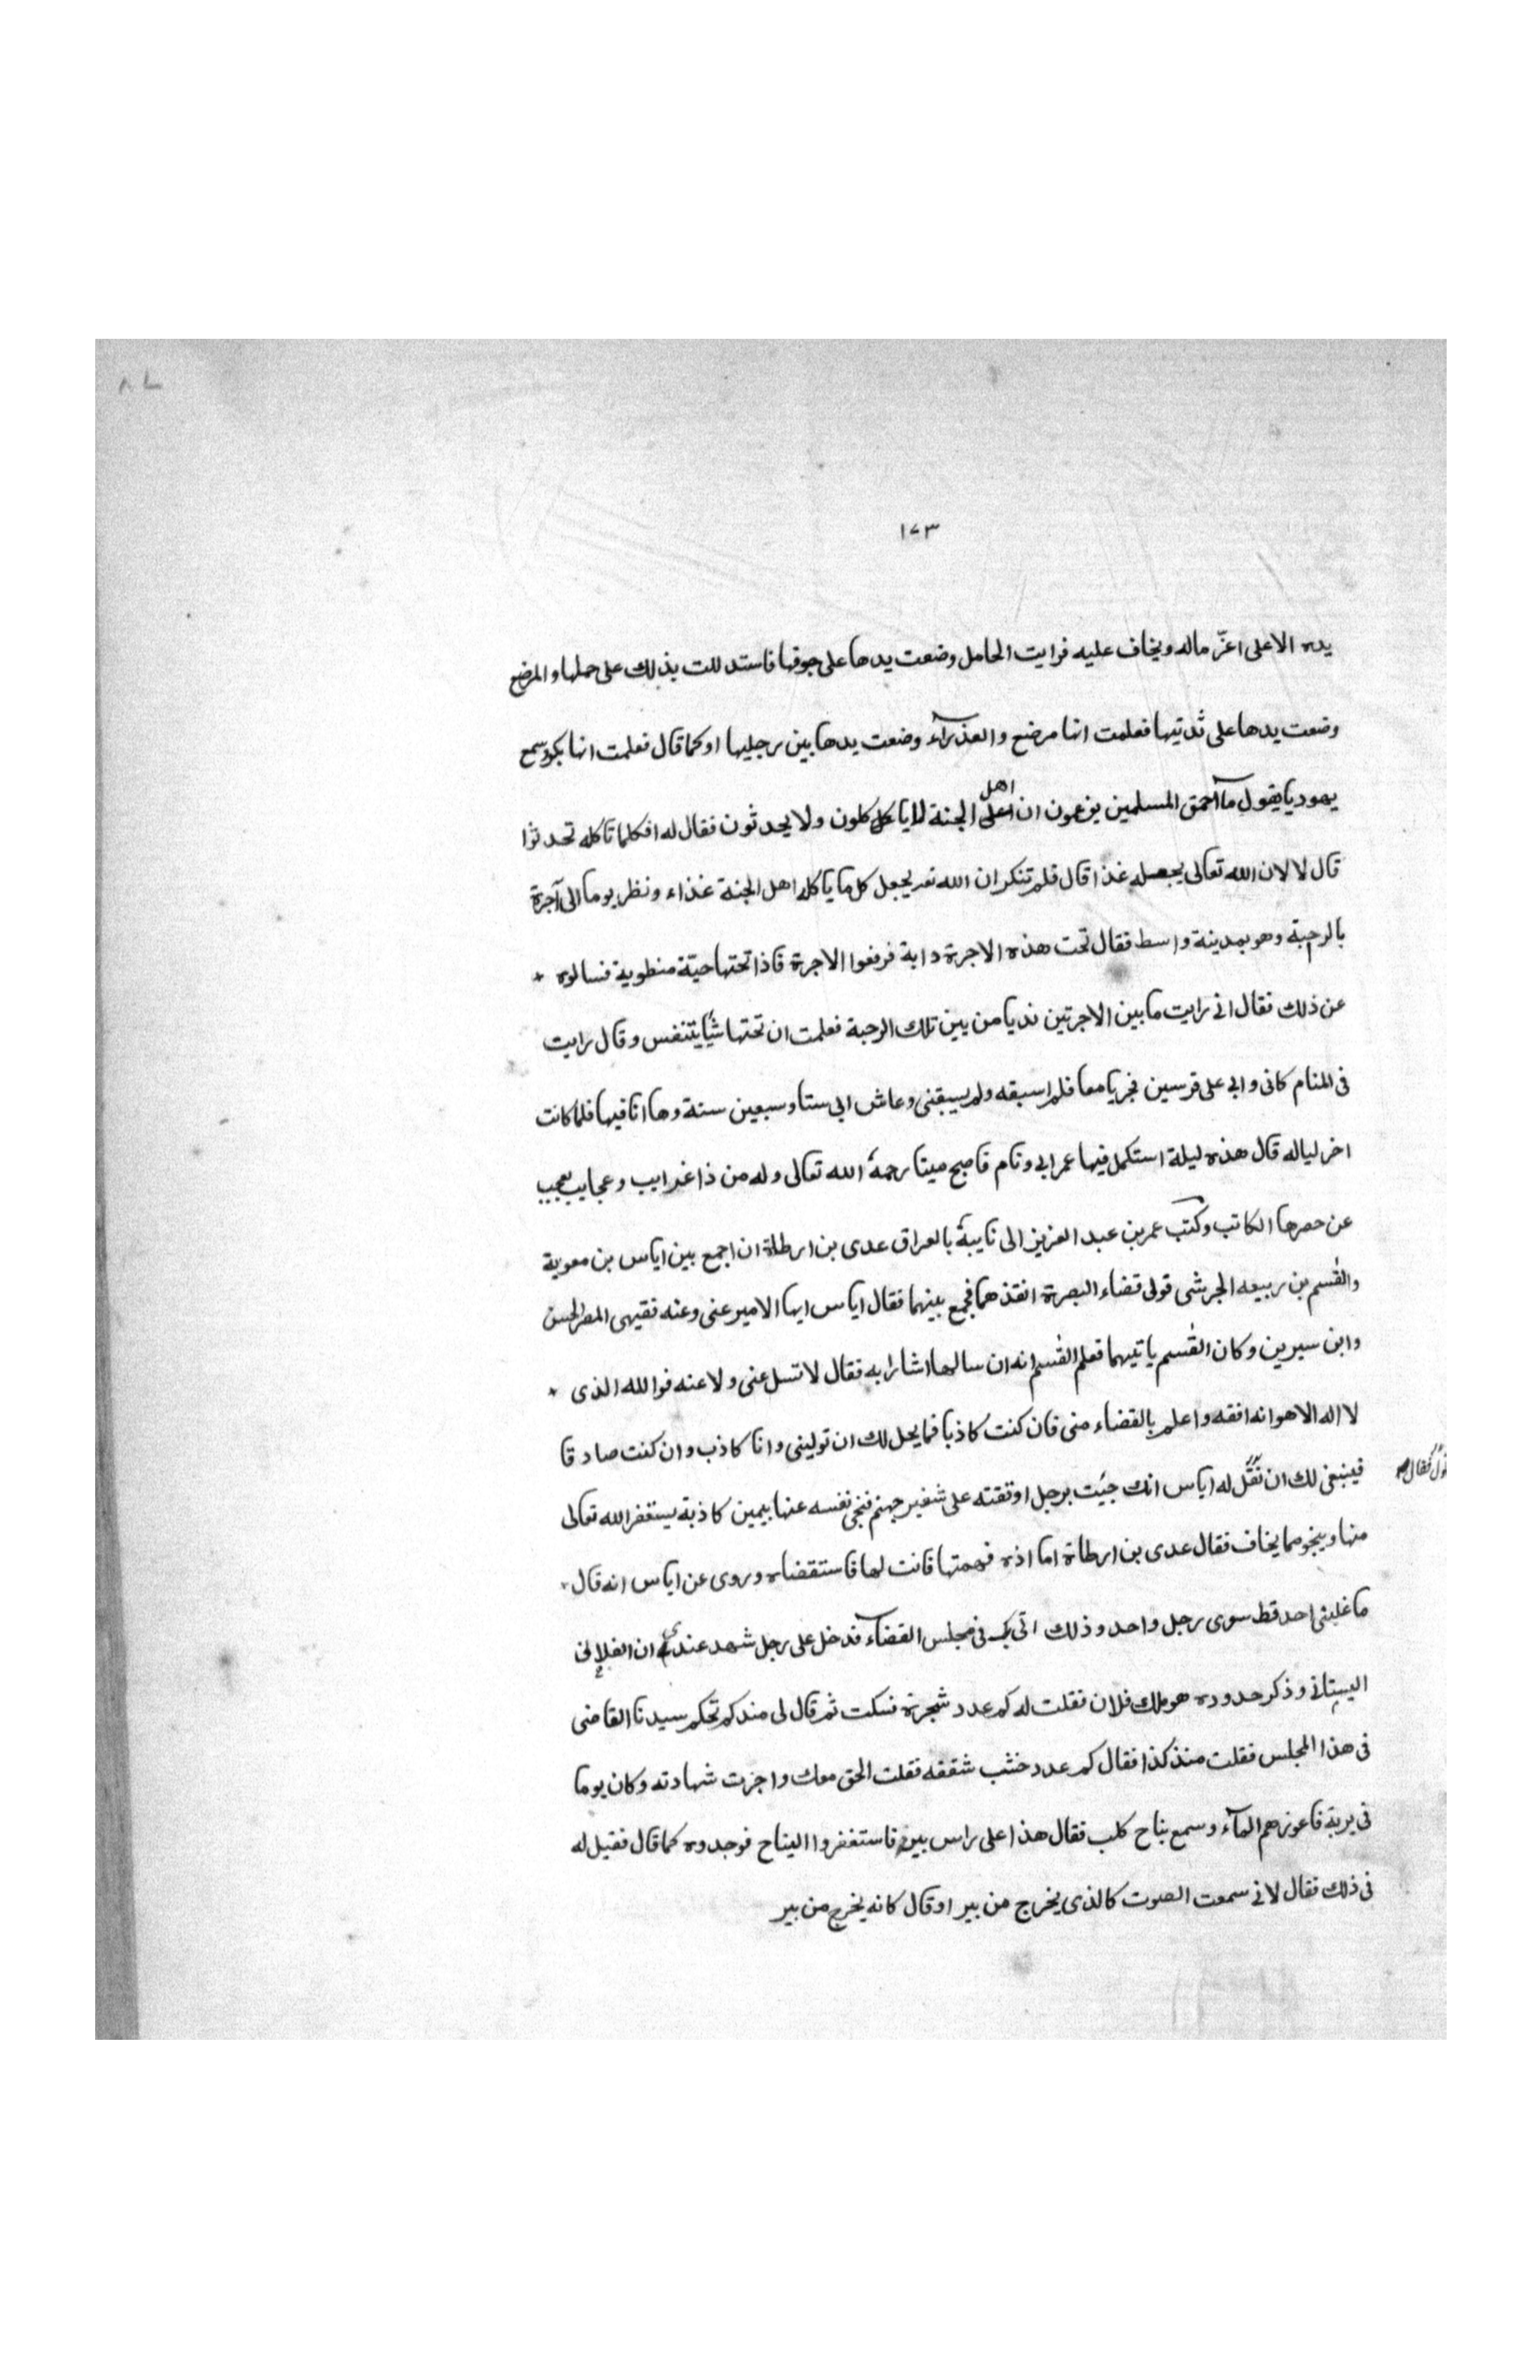 ٨٧
١٧٣
يده الا على اعزّ ماله ويخاف عليه فرايت الحامل وضعت يدها على جوفها فاستدللت بذلك على حملها والمرضع
وضعت يدها على ثديتها فعلمت انها مرضع والعذرآء وضعت يدها بين رجليها او كما قال فعلمت انها بكر وسمع
يهوديا يقول مآ احمق المسلمين يزعمون ان اهل الجنة ياكلون ولا يحدثون فقال له افكلما تاكله تحدثوا
قال لا لان الله تعالى يجعله غذا قال فلم تنكر ان الله تعـ يجعل كل ما ياكله اهل الجنة غذاء ونظر يوما الى آجرة
بالرحبة وهو بمدينة واسط فقال تحت هذه الاجرة دابة فرفعوا الاجرة فاذا تحتها حيّة منطوية فسالوه
عن ذلك فقال انى رايت ما بين الاجرتين نديا من بين تلك الرحبة فعلمت ان تحتها شيًا يتنفس وقال رايت
فى المنام كانى وابى على فرسين فجريا معا فلم اسبقه ولم يسبقنى وعاش ابى ستا وسبعين سنة وها انا فيها فلما كانت
اخر لياله قال هذه ليلة استكمل فيها عمر ابى ونام فاصبح ميتا رحمهُ الله تعالى وله من ذا غرايب وعجايب يعجب
عن حصرها الكاتب وكتب عمر بن عبد العزيز الى نايبهُ بالعراق عدى بن ارطاة ان اجمع بين اياس بن معوية
والقسم بن ربيعه الجرشى فولى قضاء البصرة انفذهما فجمع بينهما فقال اياس ايها الامير عنى وعنه فقيهى المصر الحسن
وابن سيرين وكان القسم ياتيهما فعلم القسم انه ان سالهما اشارا به فقال لا تسل عنى ولا عنه فوالله الذى
لا اله الا هو انه افقه واعلم بالقضاء منى فان كنت كاذبا فما يحل لك ان تولينى وانا كاذب وان كنت صادقا
فينبغى لك ان تقبل له اياس انك جيت برجل اوقفته على شفير جهنم فنجى نفسه عنها بيمين كاذبة يستغفر الله تعالى
فقال
منها وينجو مما يخاف فقال عدى بن ارطاة اما اذه فهمتها فانت لها فاستقضاه وروى عن اياس انه قال
ما غلبنى احد قط سوى رجل واحد وذلك انى فى مجلس القضآء فدخل على رجل شهد عندى ان الفلانى
البستانى وذكر حدوده هو ملك فلان فقلت له كم عدد شجرة فسكت ثم قال لى منذ كم تحكم سيدنا القاضى
فى هذا المجلس فقلت منذ كذا فقال كم عدد خشب شقفه فقلت الحق معك واجزت شهادته وكان يوما
فى برية فاعوزهم المآء وسمع نباح كلب فقال هذا على راس بير فاستغفروا النباح فوجدوه كما قال فقيل له
فى ذلك فقال لانى سمعت الصوت كالذى يخرج من بير او قال كانه يخرج من بير